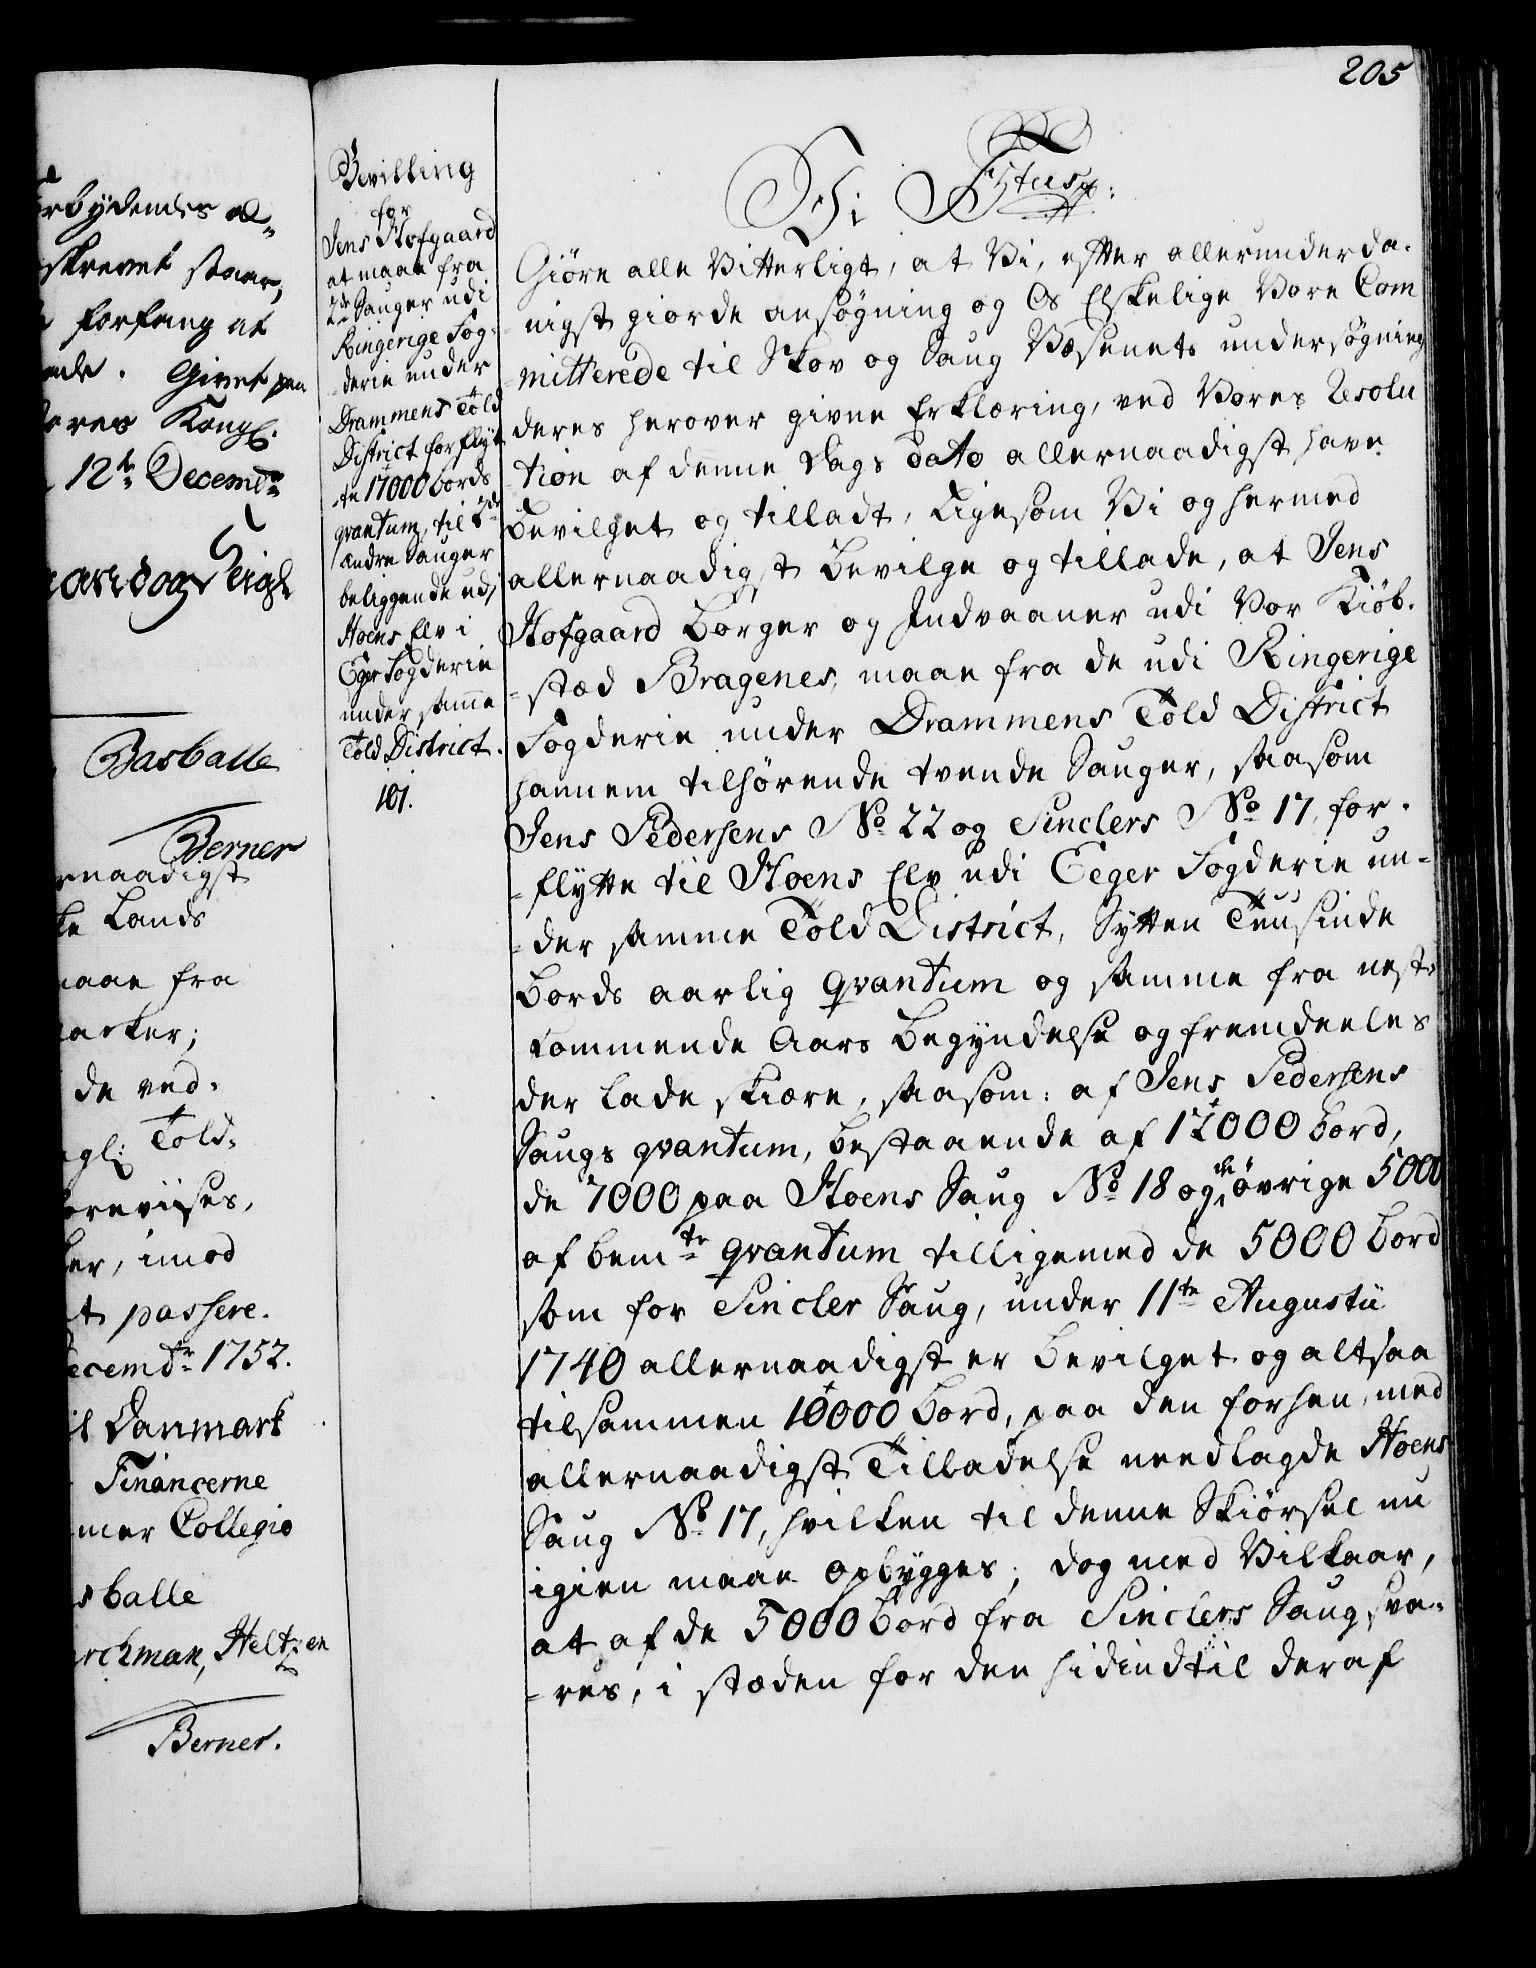 205
rbydendes al-
skrevet staar,
forfang at
ende. Givet paa
vores Kongl:
12te Decembr
Basballe
Berner
rnaadigst
ke Lands
maae fra
arker;
de ved-
gl: Told-
oreviises,
er, imod
at passere.
Decembr 1752.
til Danmark
Financerne
mer Collegio
sballe
rchman, Heltzen
Berner.
Bevilling
for
Jens Hofgaard
at maae fra
2de Sauger udi
Ringerige Fog-
derie under
Drammens Told
District forflyt
te 17000 bords
qvantum, til 2de
andre Sauger
beliggende udj
Hoens Elv i
Eger Fogderie
under same
Told District.
101.
Vi Ftus:
Giøre alle Vitterligt, at Vi, efter allerunderda-
nigst giorde ansøgning og Os Elskelige Vore Com
mitterede til Skov og Saug Væsenets undersøgning
deres herover givne Erklæring, ved Vores Resolu
tion af denne Dags dato allernaadigst have
bevilget og tilladt, Ligesom Vi og hermed
allernaadigst bevilge og tillade, at Jens
Hofgaard borger og Indvaaner udi Vor Kiøb-
stæd Bragenes, maae fra de udi Ringerige
Fogderie under Drammens Told District
hannem tilhørende tvende Sauger, saasom
Jens Pedersens No 22 og Sinclers No 17, for-
flytte til Hoens Elv udi Eeger Fogderie un-
der samme Told District, Sytten Tuusinde
bords aarlig qvantum og samme fra nest-
kommende Aars begyndelse og fremdeeles
der lade skiære, saasom: af Jens Pedersens
Saugs qvantum, bestaaende af 12000 bord,
de 7000 paa Hoens Saug No 18 og de øvrige 5000
af bemte qvantum tilligemed de 5000 bord
som for Sincler Saug, under 11te Augustii
1740 allernaadigst er bevilget og altsaa
tilsammen 10000 bord, paa den forhen, med
allernaadigst Tilladelse needlagde Hoens
Saug No 17, hvilken til denne Skiørsel nu
igien maae opbygges; dog med Vilkaar,
at af de 5000 bord fra Sinclers Saug, sva-
res, i stæden for den hidindtil deraf